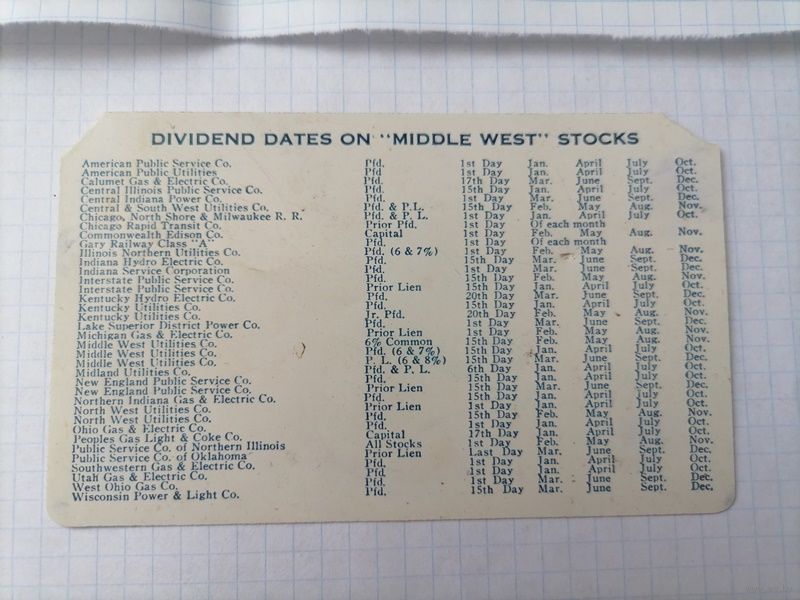 DIVIDEND DATES ON "MIDDLE WEST" STOCKS
American Public Service Co. Pfd. 1st Day Jan. April July Oct.
American Public Utilities Pfd. 1st Day Jan. April July Oct.
Calumet Gas & Electric Co. Pfd. 17th Day Mar. June Sept. Dec.
Central Illinois Public Service Co. Pfd. 15th Day Jan. April July Oct.
Central Indiana Power Co. Pfd. 1st Day Mar. June Sept. Dec.
Central & South West Utilities Co. Pfd. & P.L. 15th Day Feb. May Aug. Nov.
Chicago, North Shore & Milwaukee R. R. Pfd. & P. L. 1st Day Jan. April July Oct.
Chicago Rapid Transit Co. Prior Pfd. 1st Day Of each month
Commonwealth Edison Co. Capital 1st Day Feb. May Aug. Nov.
Gary Railway Class "A" Pfd. 1st Day Of each month
Illinois Northern Utilities Co. Pfd. (6 & 7%) 1st Day Feb. May Aug. Nov.
Indiana Hydro Electric Co. Pfd. 15th Day Mar. June Sept. Dec.
Indiana Service Corporation Pfd. 1st Day Mar. June Sept. Dec.
Interstate Public Service Co. Pfd. 15th Day Feb. May Aug. Nov.
Interstate Public Service Co. Prior Lien 15th Day Jan. April July Oct.
Kentucky Hydro Electric Co. Pfd. 20th Day Mar. June Sept. Dec.
Kentucky Utilities Co. Pfd. 15th Day Jan. April July Oct.
Kentucky Utilities Co. Jr. Pfd. 20th Day Feb. May Aug. Nov.
Lake Superior District Power Co. Pfd. 1st Day Mar. June Sept. Dec.
Michigan Gas & Electric Co. Prior Lien 1st Day Feb. May Aug. Nov.
Middle West Utilities Co. 6% Common 15th Day Feb. May Aug. Nov.
Middle West Utilities Co. Pfd. (6 & 7%) 15th Day Jan. April July Oct.
Middle West Utilities Co. P. L. (6 & 8%) 15th Day Mar. June Sept. Dec.
Midland Utilities Co. Pfd. & P. L. 6th Day Jan. April July Oct.
New England Public Service Co. Pfd. 15th Day Jan. April July Oct.
New England Public Service Co. Prior Lien 15th Day Mar. June Sept. Dec.
Northern Indiana Gas & Electric Co. Pfd. 15th Day Jan. April July Oct.
North West Utilities Co. Prior Lien 1st Day Jan. April July Oct.
North West Utilities Co. Pfd. 15th Day Feb. May Aug. Nov.
Ohio Gas & Electric Co. Pfd. 1st Day Jan. April July Oct.
Peoples Gas Light & Coke Co. Capital 17th Day Jan. April July Oct.
Public Service Co. of Northern Illinois All Stocks 1st Day Feb. May Aug. Nov.
Public Service Co. of Oklahoma Prior Lien Last Day Mar. June Sept. Dec.
Southwestern Gas & Electric Co. Pfd. 1st Day Jan. April July Oct.
Utah Gas & Electric Co. Pfd. 1st Day Jan. April July Oct.
West Ohio Gas Co. Pfd. 1st Day Mar. June Sept. Dec.
Wisconsin Power & Light Co. Pfd. 15th Day Mar. June Sept. Dec.